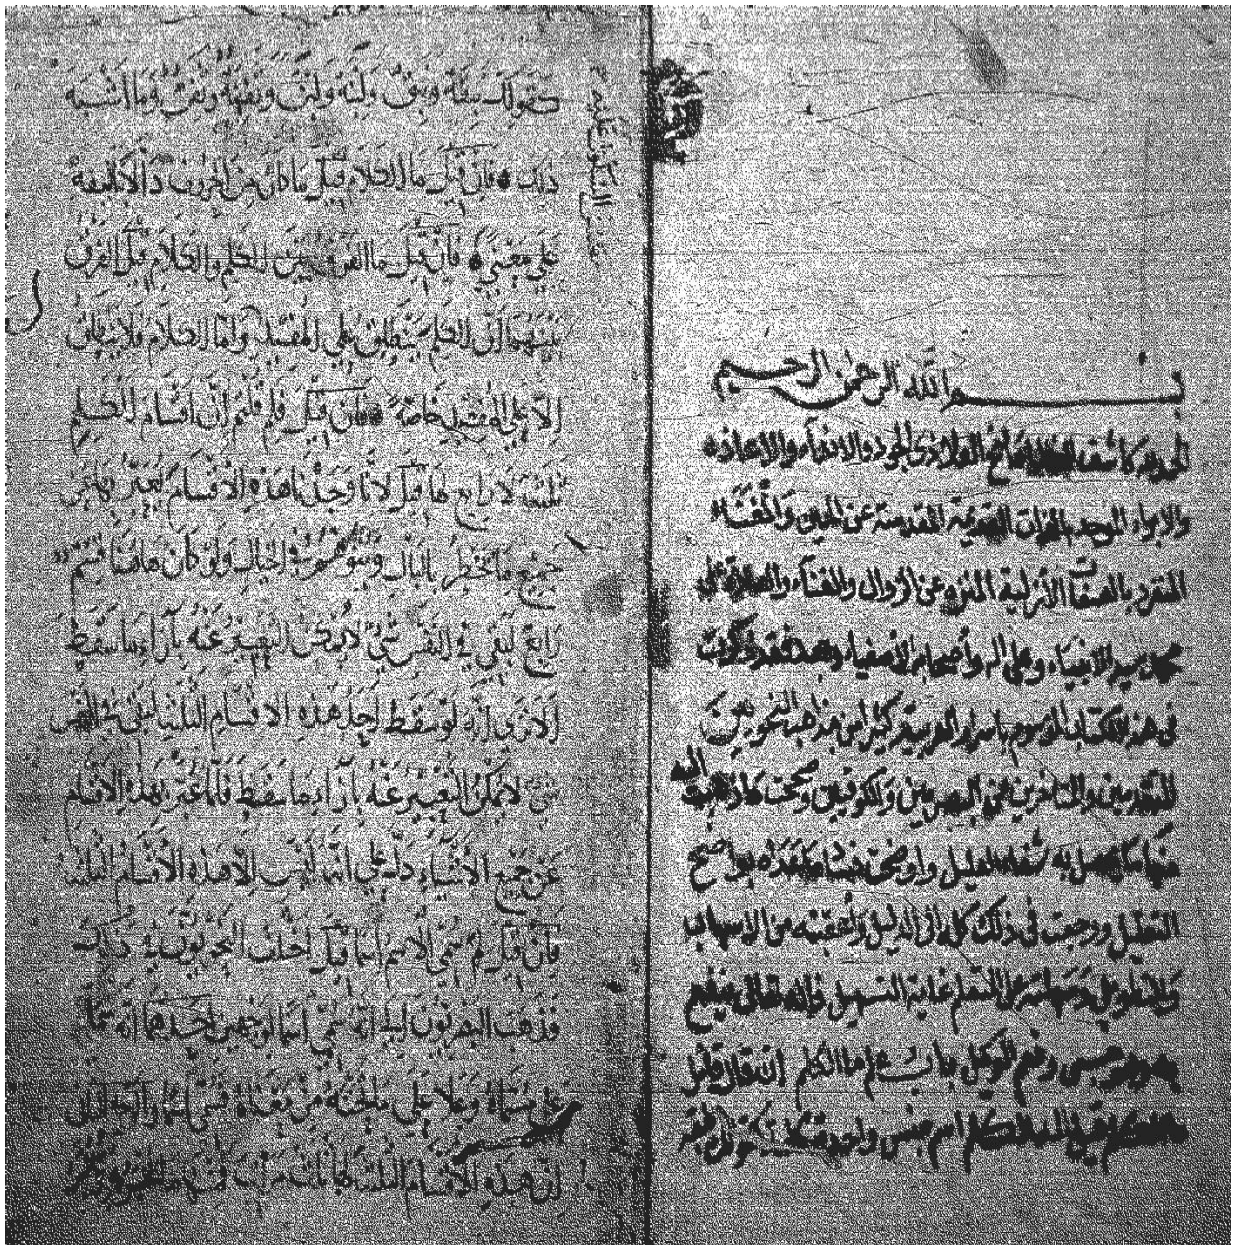 بسم الله الرحمن الرحيم
الحمد لله كاشف الغطاء ومانح العطاء ذي الجود والانداء والاعادة
والابداء المتوحد بالذات القديمة المقدسة عن الحين والفناء
المتفرد بالصفات الأزلية المنزه عن الزوال والفناء والصلاة على
محمد سيد الانبياء وعلى اله وأصحابه الأصفياء وبعد فقد ذكرت
في هذا الكتاب الموسوم باسرار العربية كثيرا من مذاهب النحويين
المتقدمين والمتأخرين من البصريين والكوفيين وصححت ما ذهبت اليه
منها بما يحصل به شفاء الغليل وأوضحت فساد ما عداه بواضح
التعليل ورجعت في ذلك كله الى الدليل وأعفيته من الاسهاب
والتطويل وسهلته على المتعلم غاية التسهيل فالله تعالى ينفع
به وهو حسبي ونعم الوكيل باب علم ما الكلم ان قال قائل
ما الكلم قيل الكلم اسم جنس واحدته كلمة كقولك نبقة
كقولك نبقة ونبق ولبنة ولبن وثفنة وثفن وما أشبه
ذلك فإن قيل ما الكلام قيل ما كان من الحروف دالا بتأليفه
على معنى فإن قيل ما الفرق بين الكلم والكلام قيل الفرق
بينهما أن الكلم ينطلق على المفيد وأما الكلام فلا ينطلق
إلا على المفيد خاصة فإن قيل فلم قلتم إن أقسام الكلم
ثلاثة لا رابع لها قيل لأنا وجدنا هذه الأقسام يعبر بها عن
جميع ما يخطر بالبال ويتوهم في الخيال ولو كان هاهنا قسم
رابع لبقي في النفس شيء لا يمكن التعبير عنه بإزاء ما سقط
ألا ترى أنه لو سقط أحد هذه الأقسام الثلثة لبقي في النفس
شيء لا يمكن التعبير عنه بإزاء ما سقط فلما عبر بهذه الأقسام
عن جميع الأشياء دل على أنه ليس إلا هذه الأقسام الثلثة
فإن قيل لم سمي الاسم اسما قيل اختلف النحويون في ذلك
فذهب البصريون إلى أنه سمي اسما لوجهين أحدهما أنه سما
على مسماه وعلا على ما تحته من معناه فسمي اسما والوجه الثاني
أن هذه الأقسام الثلثة لها ثلث مراتب